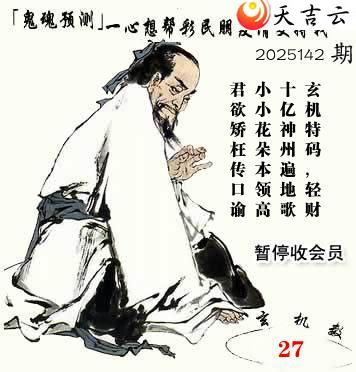 天吉云
「鬼魂预测」一心想帮彩民朋
2025142 期
玄机特码，轻财
十亿神州遍地歌
小小花朵本领高
君欲矫枉传口谕
暂停收会员
玄机
27